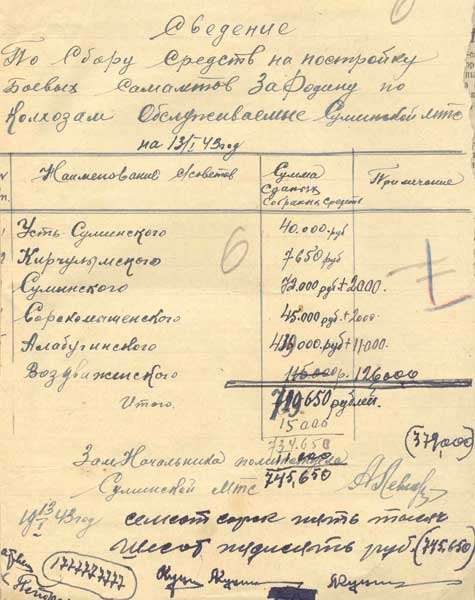 Сведение
По Сбору Средств на постройку
Боевых самалтов За Родину по
Колхозам Обслуживаемые Суминской мтс
на 13/I 43 год
Наименование с/советов Сумма сданых собраных средств Примечание
1 Усть-Суминского 40.000 руб
2 Киргулымского 7650 руб
Суминского 72.000 руб + 2000.
Сорокомашенского 45.000 руб + 2000
Алабугинского 419000 руб + 11000
Воздвиженского 115000 р. 126000
Итого. 719.650 рублей.
15000
734.650
11000
745,650
(379,000)
Зам Начальника
Суминской Мтс
19 13/I 43 год
семсот сорок пять тысяч
Шесот пядисять руб. (745,650)
1777777777